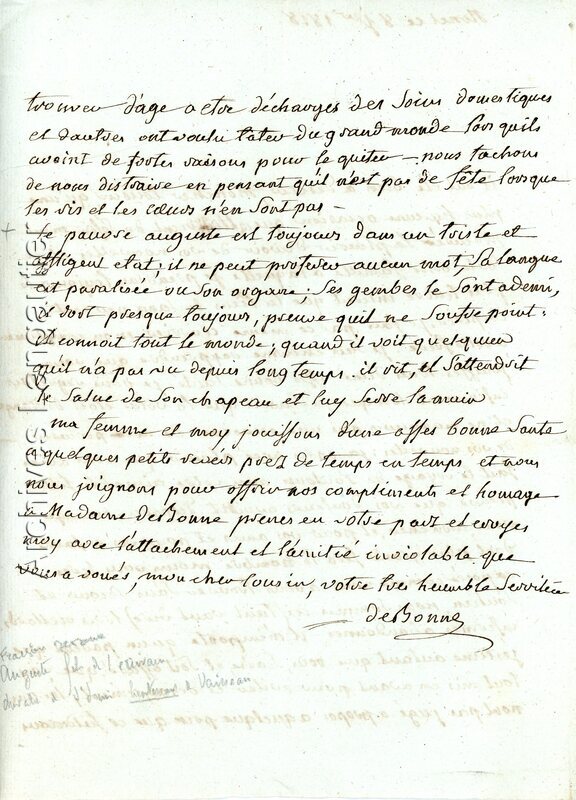 trouveu d'age a etre déchargés des soins domestiques
et d'autres ont voulu tater du grand monde lors quils
avoint de fortes raisons pour le quiter — nous tachons
de nous distraire en pensant qu'il n'est pas de fête lorsque
les ris et les cœurs n'en sont pas —
le pauvre auguste est toujours dans un triste et
affligent etat; il ne peut proferer aucun mot, sa langue
est paralisée ou son organe; ses gembes le sont ademi,
il dort presque toujours, preuve quil ne soufre point:
il connoit tout le monde; quand il voit quelquun
qu'il n'a pas vu depuis longtemps. il rit, et s'attendrit
le salue de son chapeau et luy serre la main
ma femme et moy jouissons d'une asses bonne santé
a quelques petits revers prez de temps en temps et nous
nous joignons pour offrir nos compliments et homage
a Madame de Bonne prenes en votre part et croyes
moy avec l'attachement et l'amitié inviolable que
vous a voués, mon cher Cousin, votre tres heumble Serviteur
de Bonne
Auguste fils de
de Vaisseau
Archives Lamautier